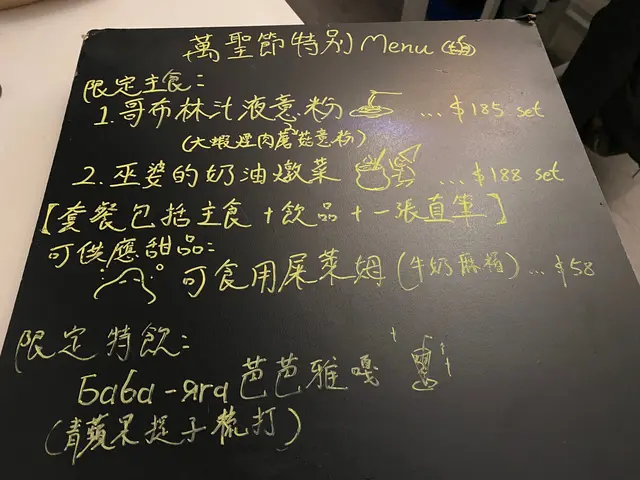 萬聖節特別Menu
限定主食:
1.哥布林汁液意粉 ...$185 set
(大蝦煙肉蘑菇意粉)
2.巫婆的奶油燉菜 ...$188 set
【套餐包括主食+飲品+一張直筆】
可供應甜品:
可食用屎萊姆(牛奶麻糬)...$58
限定特飲:
Баба-яга芭芭雅嘎
(青蘋果提子梳打)